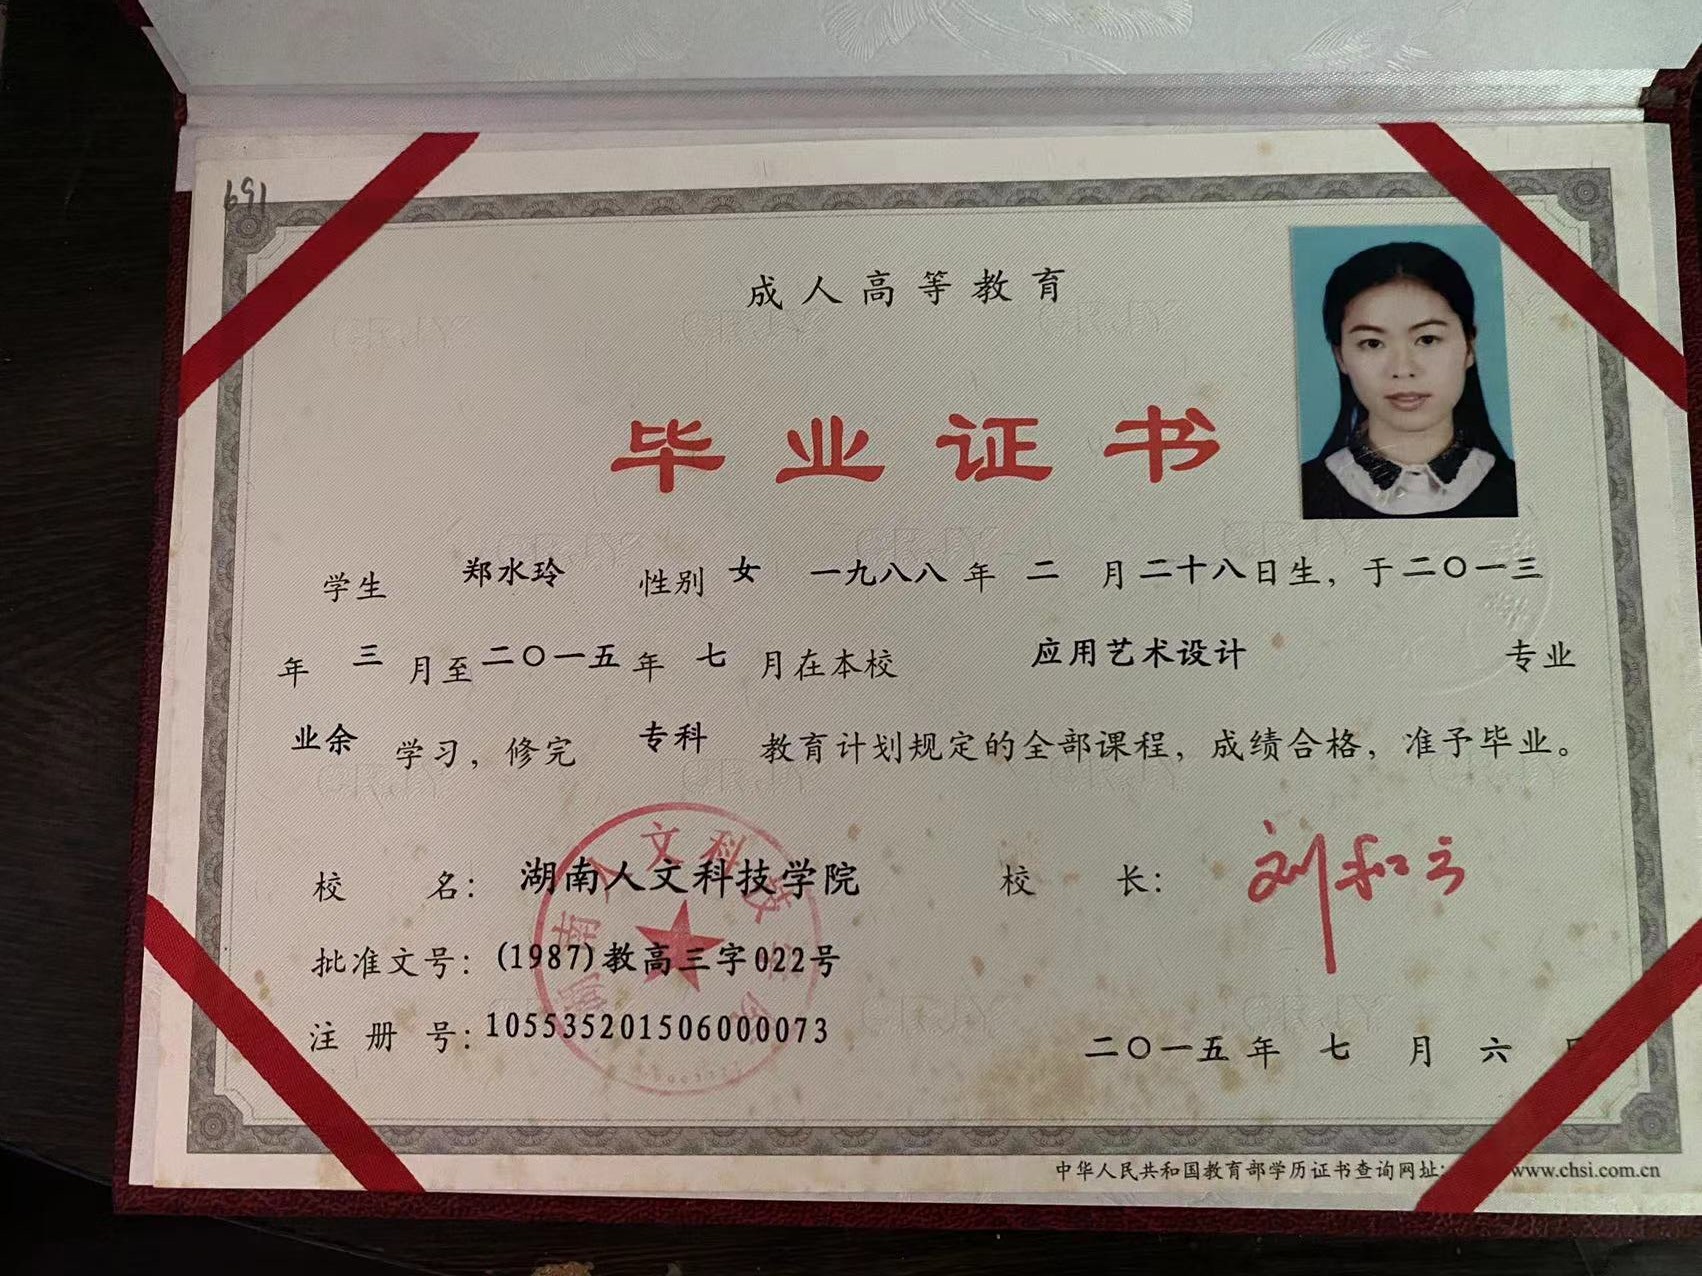 691
成人高等教育
毕业证书
学生 郑水玲 性别 女 一九八八年 二 月二十八日生，于二〇一三
年 三 月至二〇一五年 七 月在本校 应用艺术设计 专业
业余 学习，修完 专科 教育计划规定的全部课程，成绩合格，准予毕业。
校 名：湖南人文科技学院 校 长：刘和云
湖南人文科技学院
批准文号：(1987)教高三字022号
注 册 号：105535201506000073
二〇一五年 七 月 六 日
中华人民共和国教育部学历证书查询网址： www.chsi.com.cn